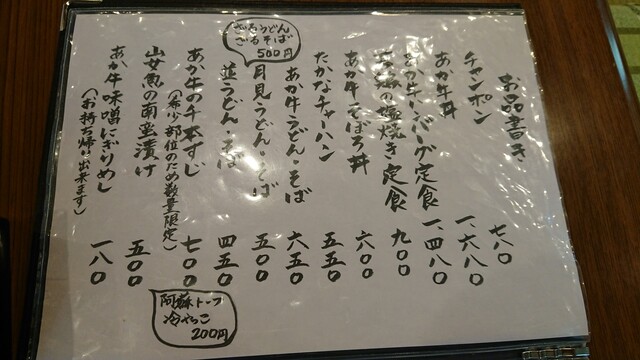 お品書き
チャンポン 七八〇
あか牛丼 一、六八〇
あか牛ハンバーグ定食 一、四八〇
の塩焼き定食 九〇〇
あか牛そぼろ丼 六〇〇
たかなチャーハン 五五〇
あか牛うどん・そば 六五〇
月見うどん・そば 五〇〇
並うどん・そば 四五〇
あか牛の千本すじ 七〇〇
(希少部位のため数量限定)
山女魚の南蛮漬け 五〇〇
あか牛味噌にぎりめし 一八〇
(お持ち帰り出来ます)
ざるうどん
ざるそば
500円
阿蘇トーフ
冷やっこ
200円